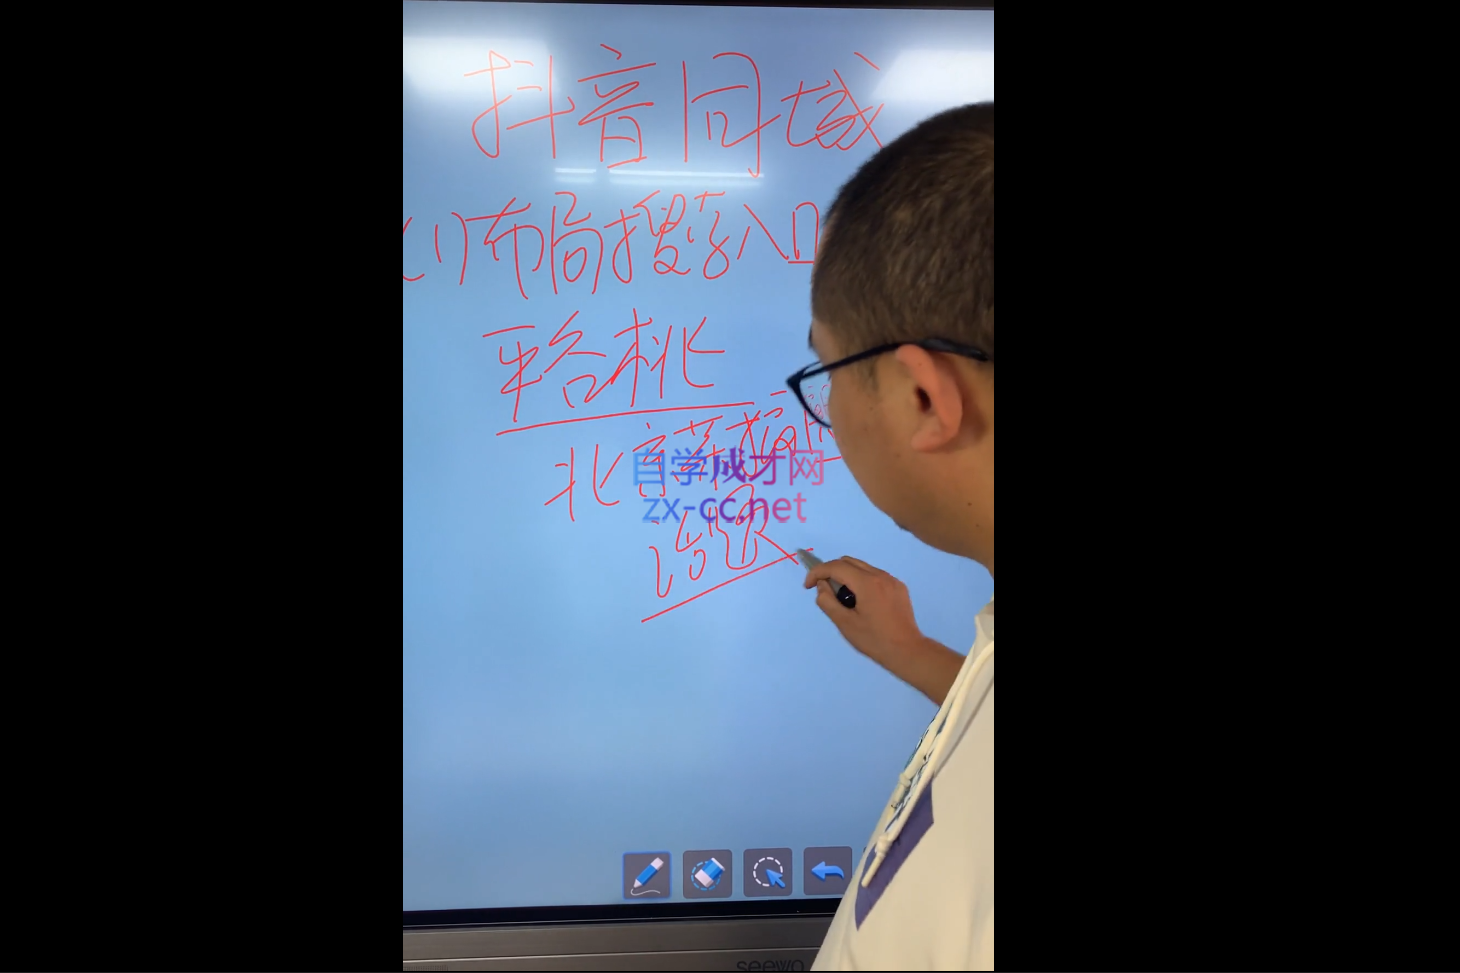 抖音同城
(1)布局搜索入口
平谷桃
北京
自学成才网
zx-cc.net
话题
seewo